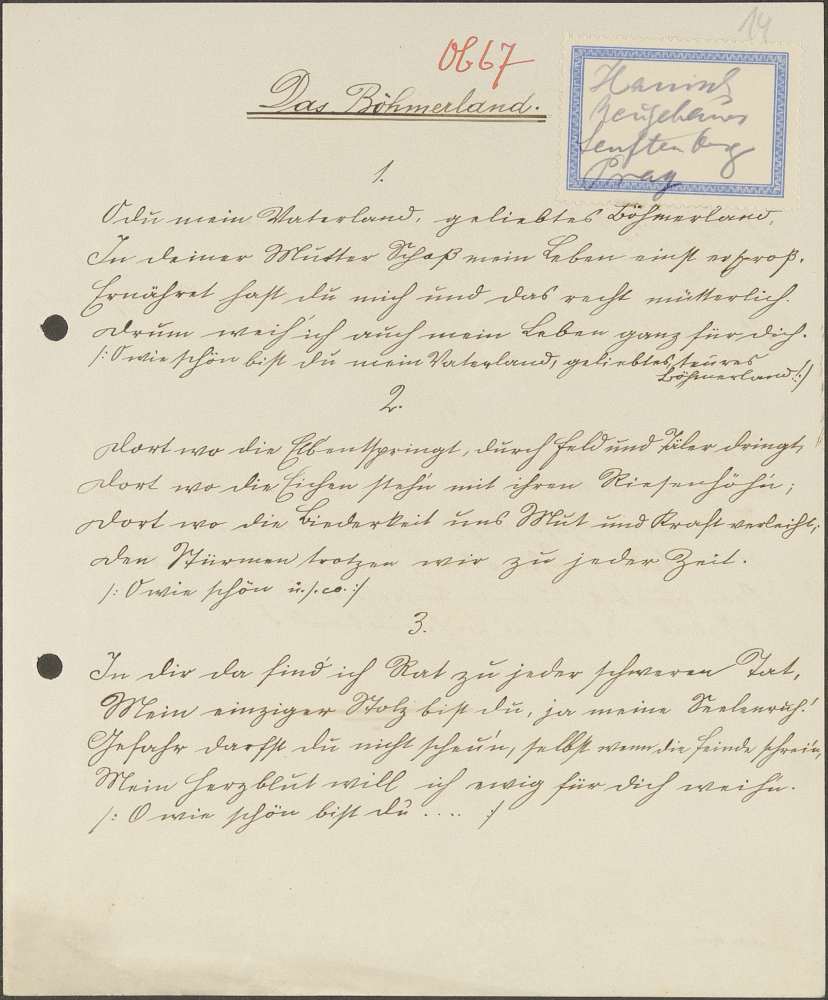 14
Ob67
Das Böhmerland.
Hanisch
Zeughaus
Senftenberg
Prag
1.
O du mein Vaterland, geliebtes Böhmerland,
In deiner Mutter Schoß mein Leben einst ersproß.
Ernähret hast du mich und das recht mütterlich.
Drum weih' ich auch mein Leben ganz für dich.
/: O wie schön bist du mein Vaterland, geliebtes, teures
Böhmerland! :/
2.
Dort wo die Elb' entspringt, durch Feld und Täler dringt,
Dort wo die Eichen steh'n mit ihren Riesenhöh'n;
Dort wo die Biederkeit uns Mut und Kraft verleiht,
Den Stürmen trotzen wir zu jeder Zeit.
/: O wie schön u.s.w. :/
3.
In dir da find' ich Rat zu jeder schweren Tat,
Mein einziger Stolz bist du, ja meine Seelenruh'!
Gefahr darfst du nicht scheu'n, selbst wenn die Feinde schrei'n,
Mein Herzblut will ich ewig für dich weih'n.
/: O wie schön bist du .... :/